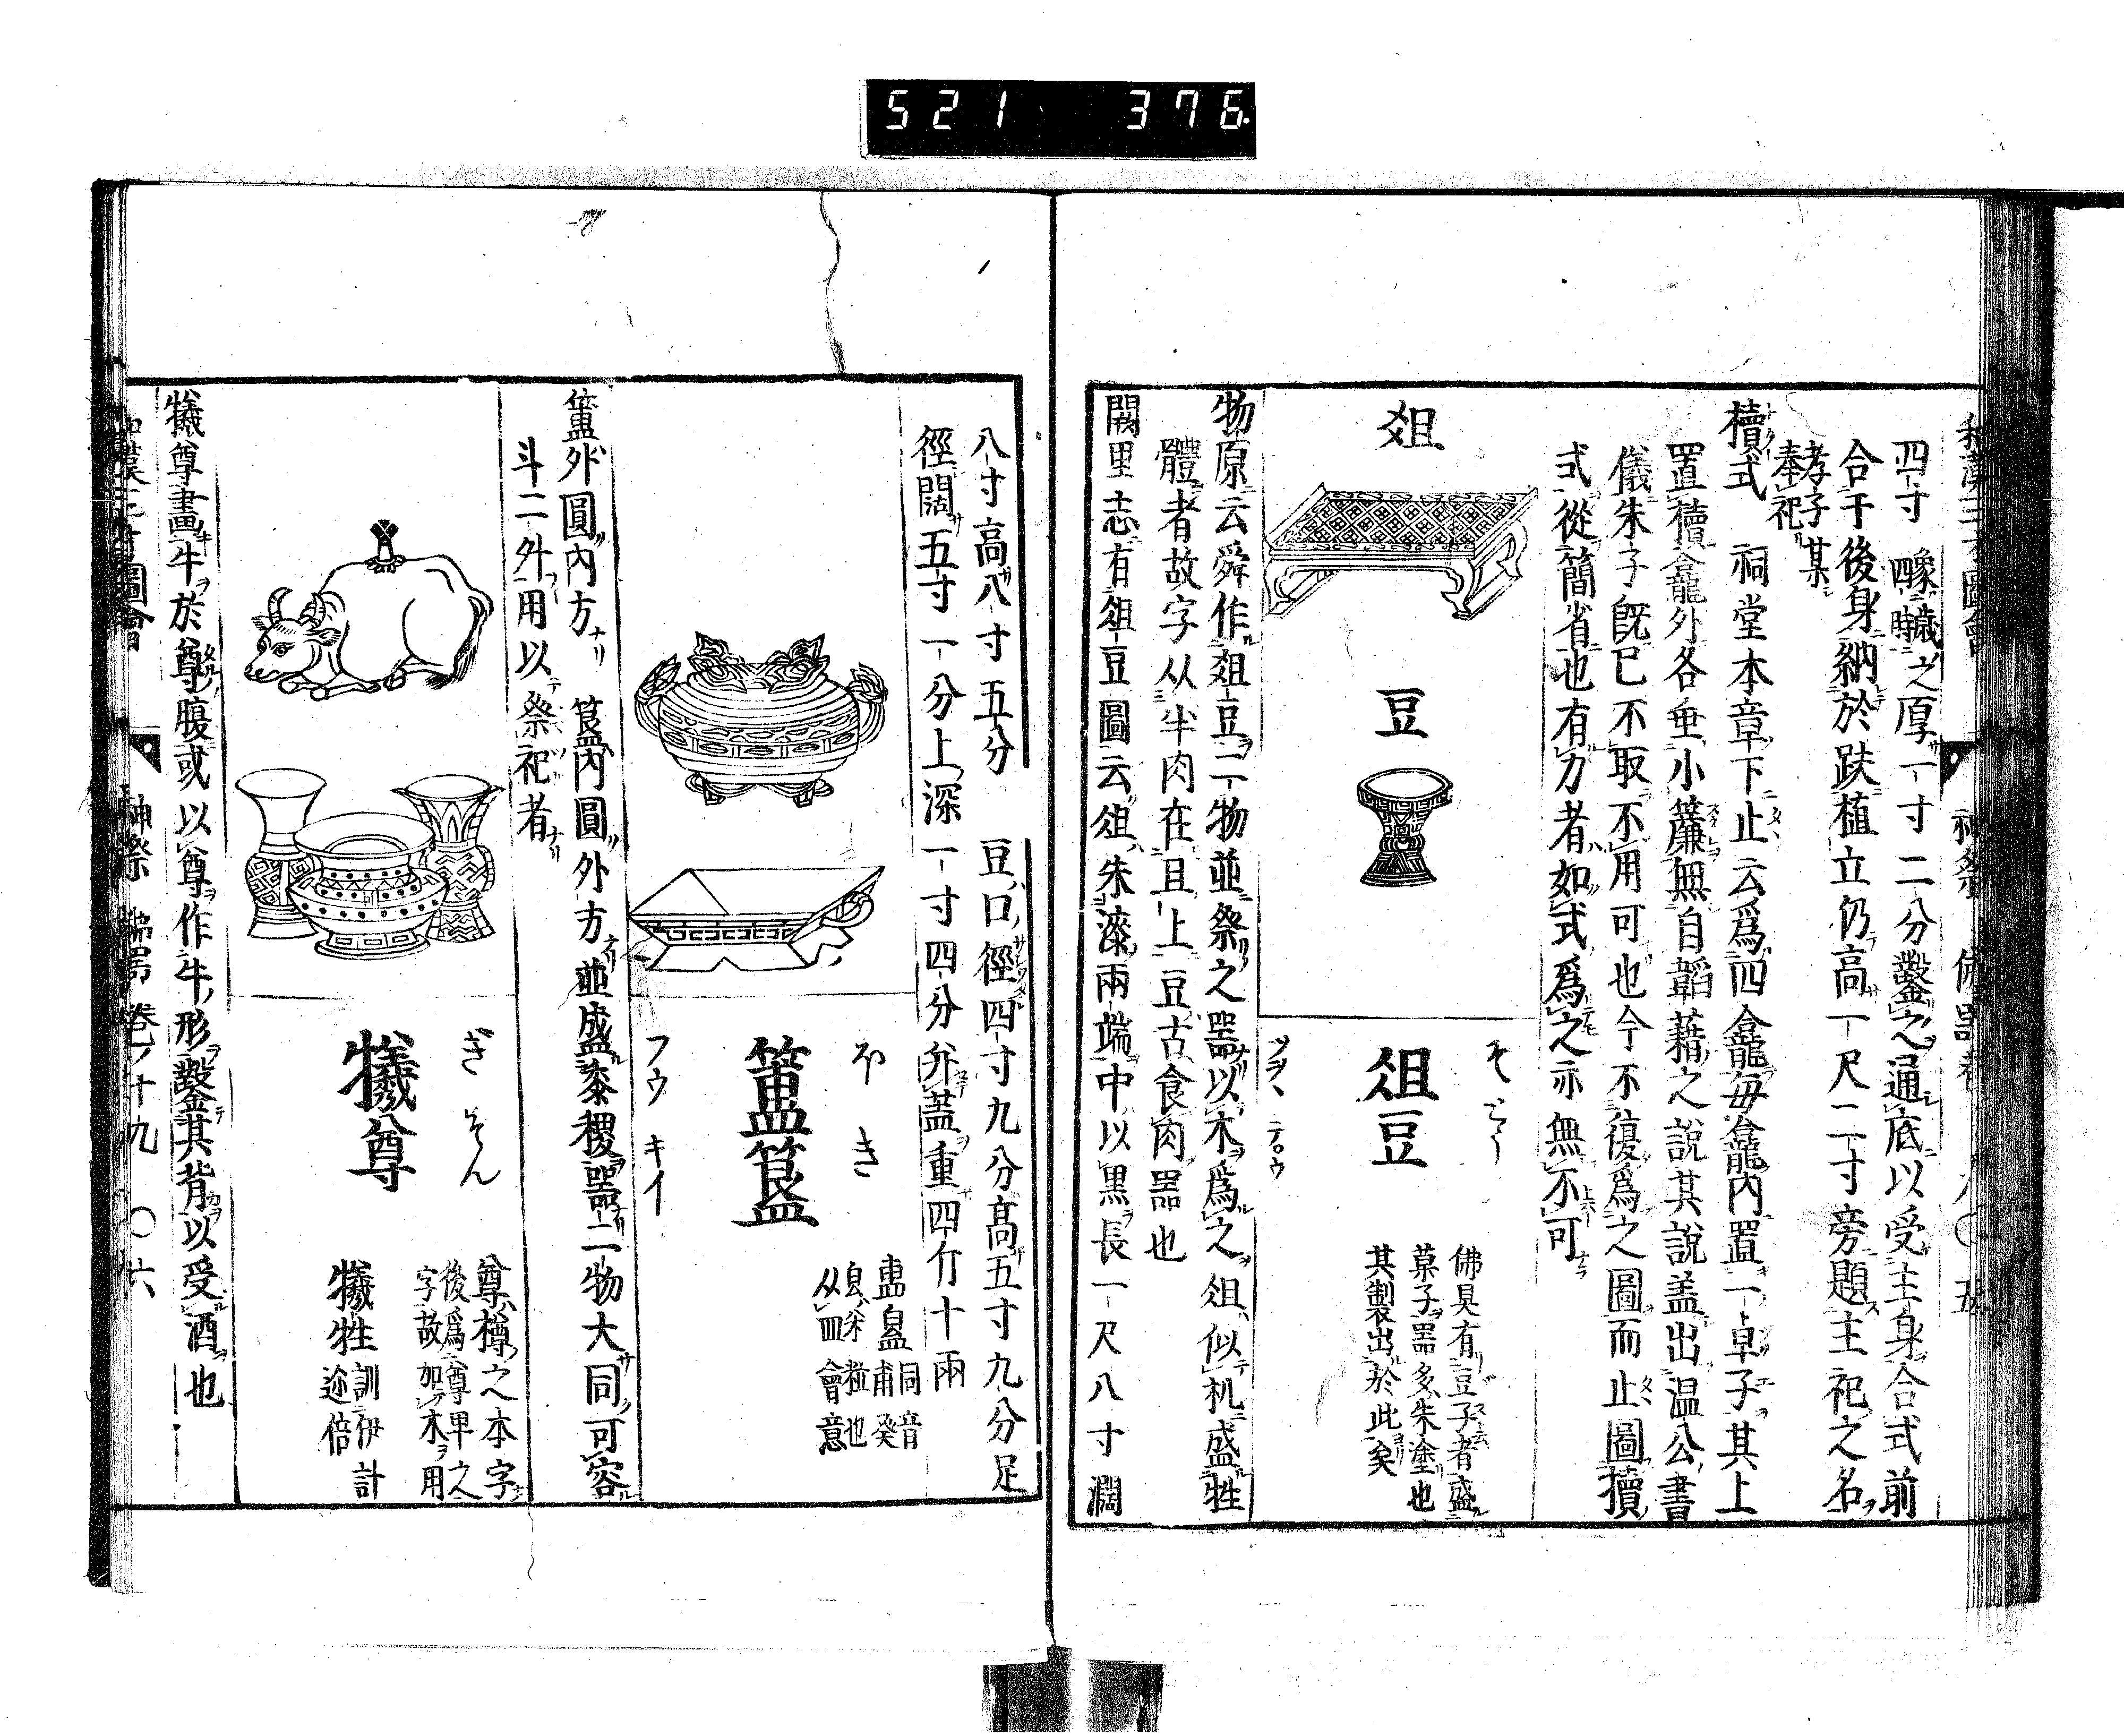 521 376
四寸象四時歲之厚一寸二分鑿之通底以受主身合式前
合于後身納於趺植立仍高一尺二寸旁題主祀之名
孝子某
奉祀
櫝式 祠堂本章下止云爲四龕每龕內置一卓子其上
置櫝龕外各垂小簾無自韜藉之說其說盖出温公書
儀朱子既已不取不用可也今不復爲之圖而止圖櫝
式從簡省也有力者如式爲之亦無不可
俎
豆
そ
俎豆
佛具有豆子者盛
菓子器多朱塗也
其製出於此矣
物原云舜作俎豆二物並祭之器以木爲之俎似机盛牲
體者故字从半肉在且上豆古食肉器也
闕里志有俎豆圖云俎朱漆兩端中以黒長一尺八寸濶
八寸高八寸五分 豆口徑四寸九分高五寸九分足
徑闊五寸一分上深一寸四分并蓋重四斤十兩
ほき
簠簋
フウ キイ
同音
甫癸
从皿會意
簠外圓內方 簋內圓外方並盛黍稷器二物大同可容
斗二升用以祭祀者
ぎそん
犧尊
尊樽之本字
後爲尊卑之
字故加木用
犧牲 訓伊計
迩倍
犧尊畫牛於尊腹或以尊作牛形鑿其背以受酒也
卷ノ十九 〇六